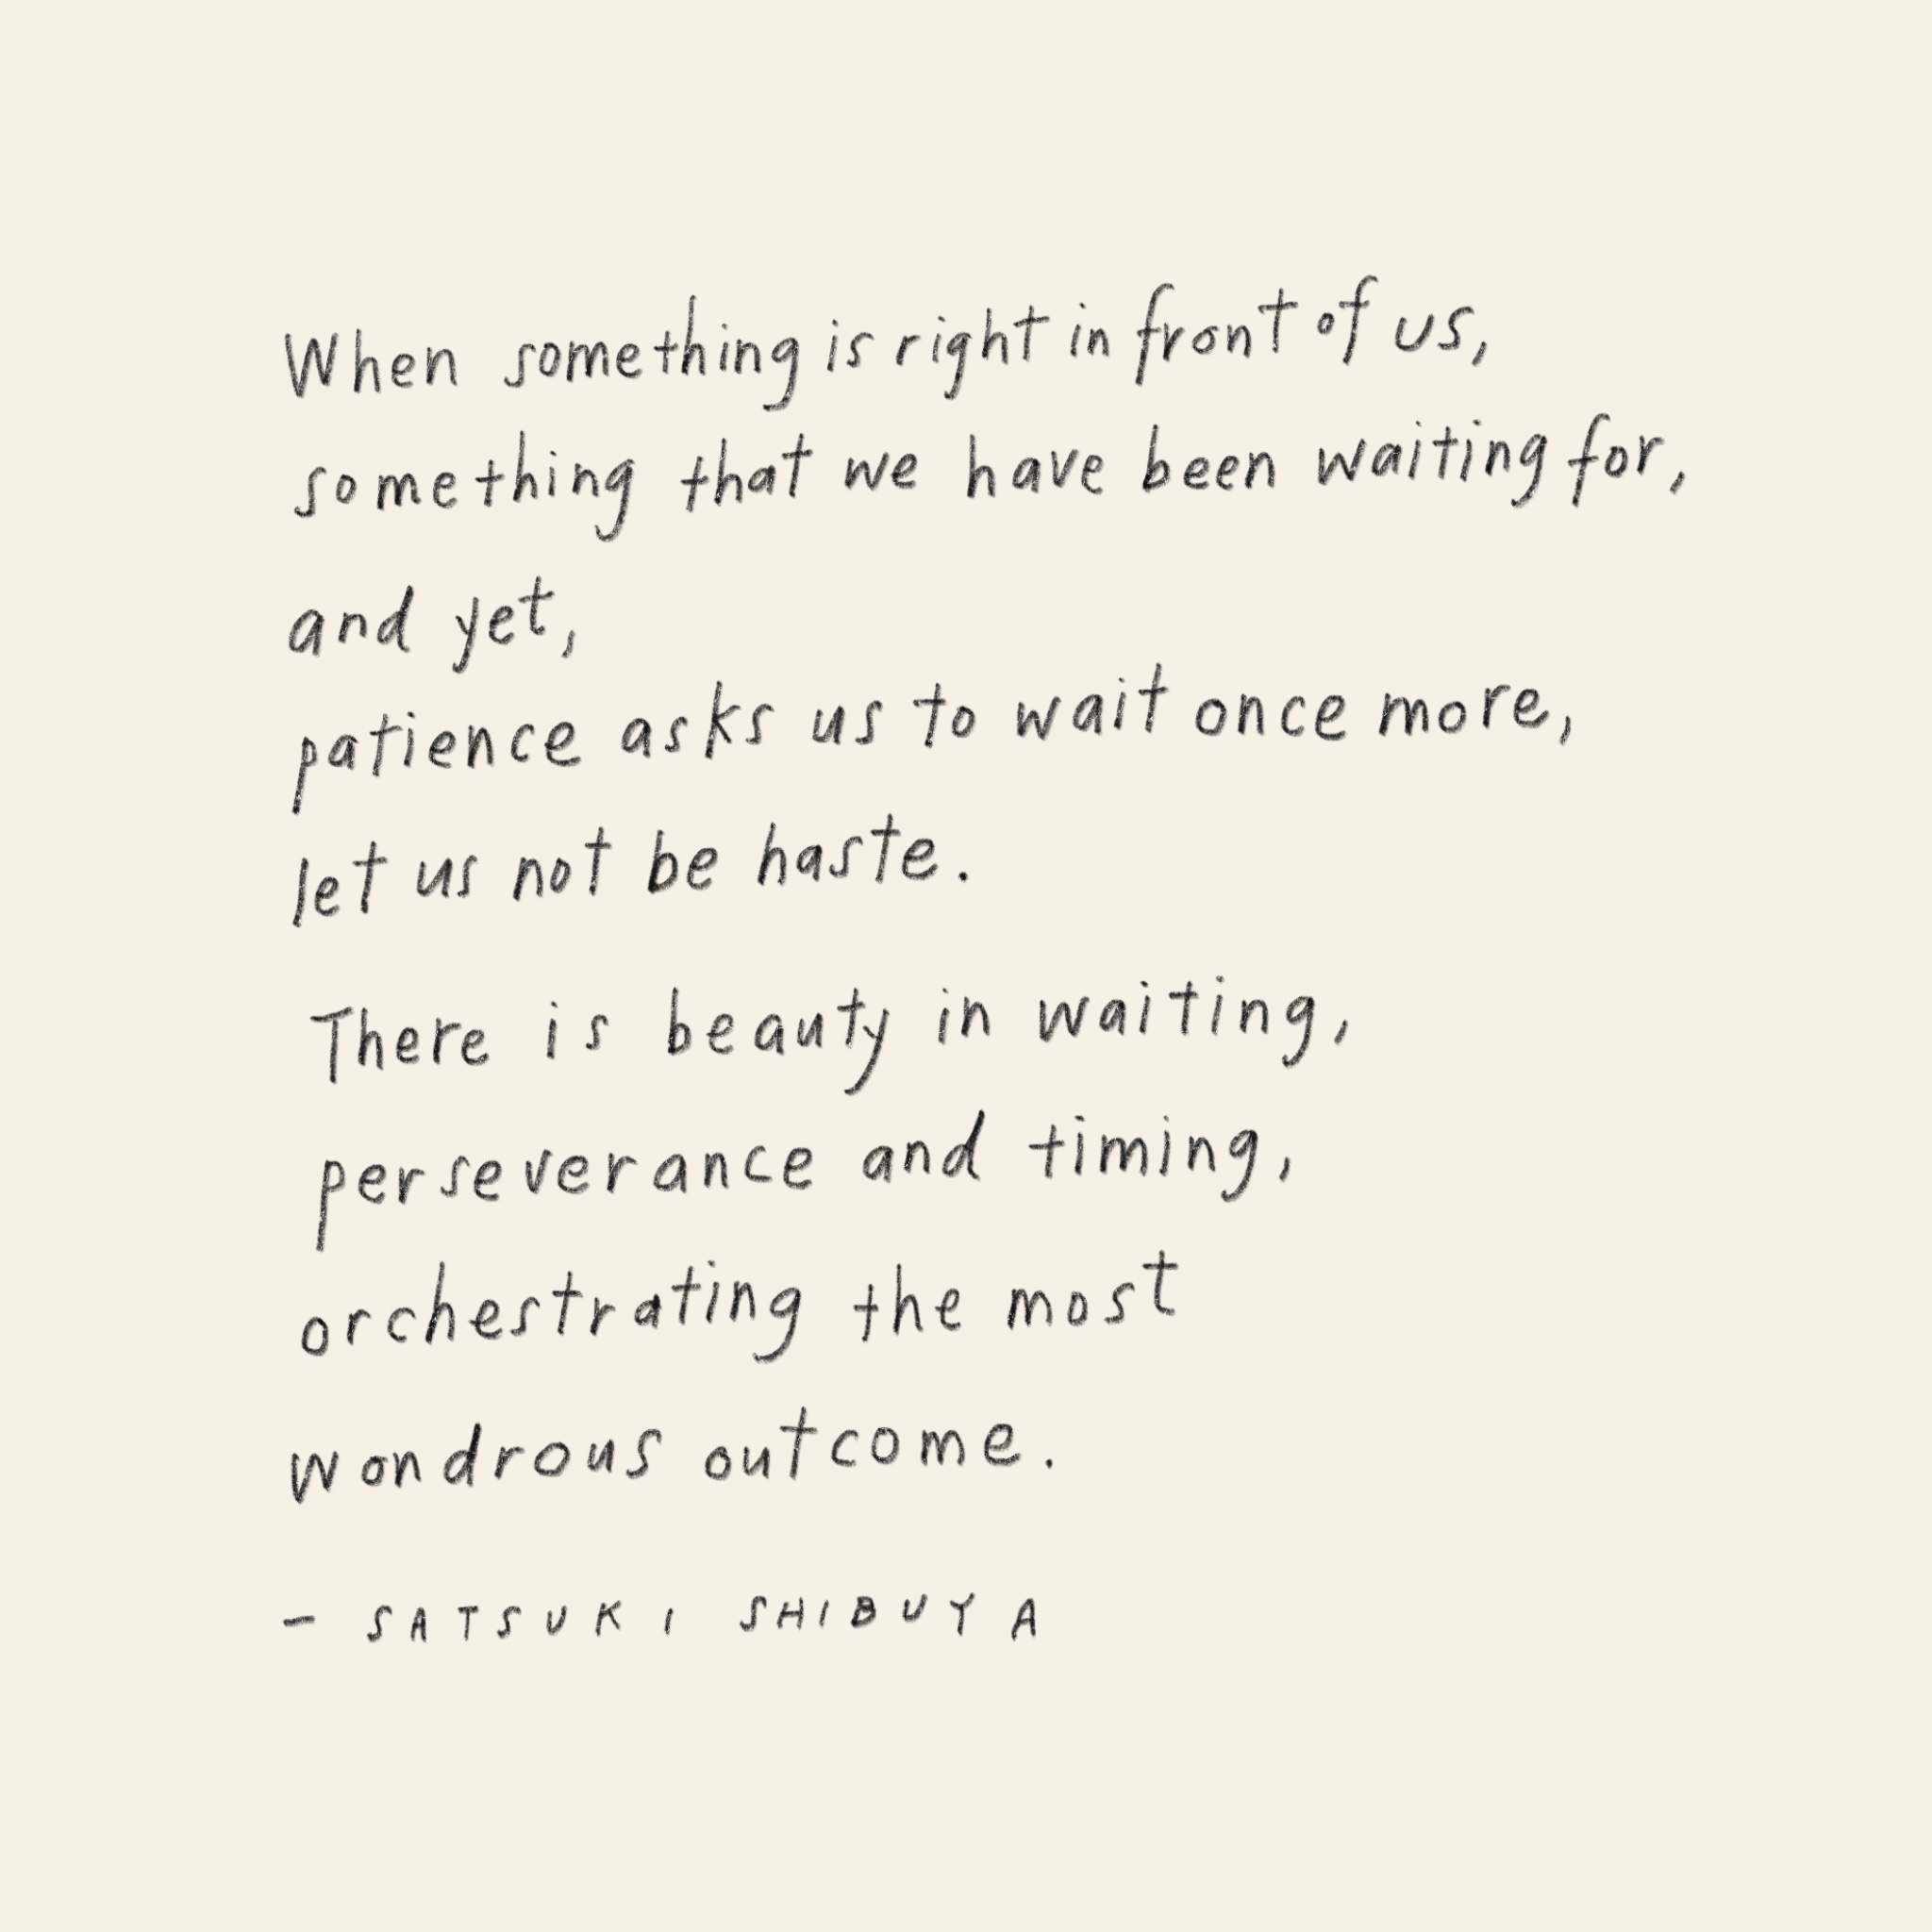 When something is right in front of us,
something that we have been waiting for,
and yet,
patience asks us to wait once more,
let us not be haste.
There is beauty in waiting,
perseverance and timing,
orchestrating the most
wondrous outcome.
- SATSUKI SHIBUYA